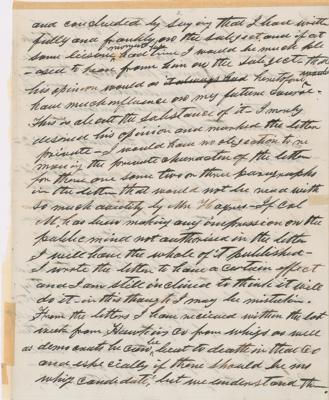 and concluded by saying that I have written
fully and frankly on the subject, and if at
some leisure moment I would be much ple
-ased to hear from him on the subject, that
his opinion would as it always had heretofore
have much influence on my future
This is about the substance of it - I merely
desired his opinion and marked the letter
private - I would have no objection to re
moving the private character of the letter
for there one some two or three paragraphs
in the letter that would not be read with
so much avidity by Mr Haynes - If Col
M. has been making any impression on the
public mind not authorised in the letter
I will have the whole of it published -
I wrote the letter to have a certain effect
and I am still inclined to think it will
do it - in this though I may be mistaken -
From the letters I have received within the last
week from Hawkins Co from whigs as well
as democrats he can be beat to death in that Co
and especially if there should be no
whig candidate, but we understand th